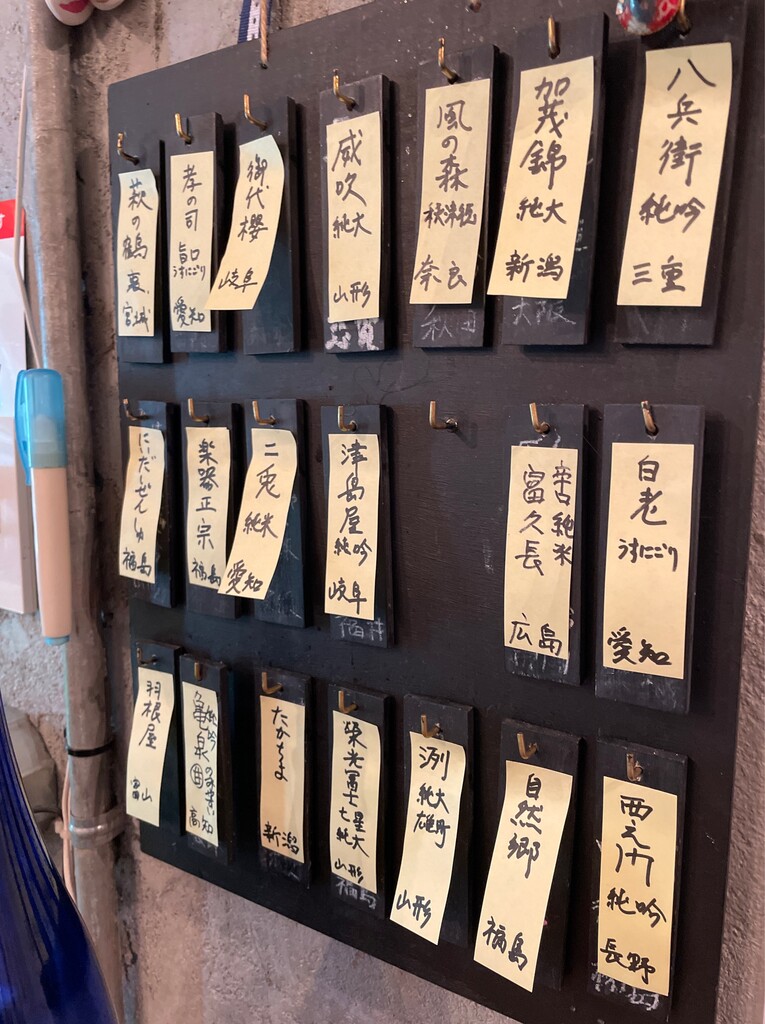 八兵衛 純吟 三重
加茂錦 純大 新潟
大阪
風の森 秋津穂 奈良
秋田
威吹 純大 山形
御代櫻 岐阜
孝の司 旨口 うすにごり 愛知
萩の鶴 裏 宮城
白老 うすにごり 愛知
辛口純米
富久長 広島
津島屋 純吟 岐阜
福井
二兎 純米 愛知
楽器正宗 福島
にいだしぜんしゅ 福島
西之門 純吟 長野
自然郷 福島
洌 純大 雄町 山形
榮光冨士 七星 純大 山形
福島
たかちよ 新潟
純吟
亀泉 高知
羽根屋 富山